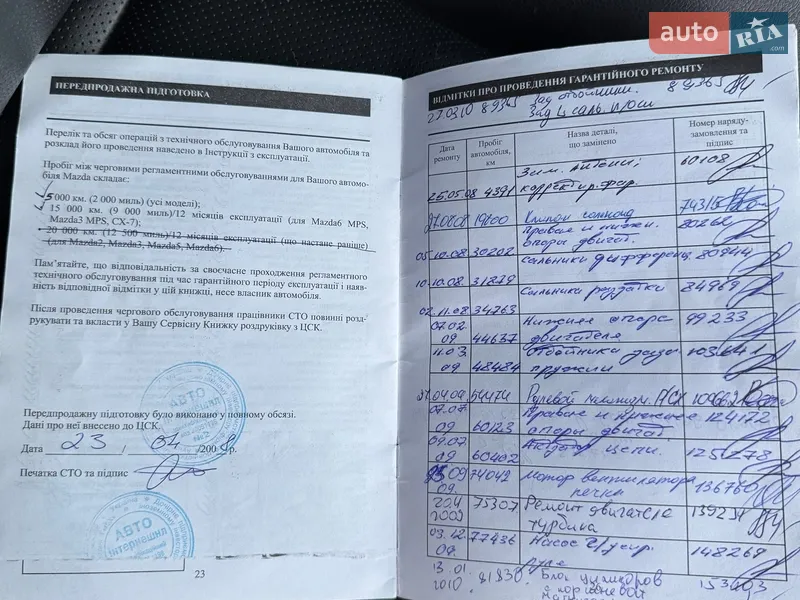 ПЕРЕДПРОДАЖНА ПІДГОТОВКА
Перелік та обсяг операцій з технічного обслуговування Вашого автомобіля та
розклад його проведення наведено в Інструкції з експлуатації.
Пробіг між черговими регламентними обслуговуваннями для Вашого автомо-
біля Mazda складає:
5 000 км. (2 000 миль) (усі моделі);
15 000 км. (9 000 миль)/12 місяців експлуатації (для Mazda6 MPS,
Mazda3 MPS, CX-7);
20 000 км. (12 500 миль)/12 місяців експлуатації (що настане раніше)
(для Mazda2, Mazda3, Mazda5, Mazda6).
Пам'ятайте, що відповідальність за своєчасне проходження регламентного
технічного обслуговування під час гарантійного періоду експлуатації і наяв-
ність відповідної відмітки у цій книжці, несе власник автомобіля.
Після проведення чергового обслуговування працівники СТО повинні розд-
рукувати та вкласти у Вашу Сервісну Книжку роздруківку з ЦСК.
Передпродажну підготовку було виконано у повному обсязі.
Дані про неї внесено до ЦСК.
Дата 23 / 04 /200 8 р.
Печатка СТО та підпис
АВТО
АВТО
Інтернешнл
23
auto RIA .com
ВІДМІТКИ ПРО ПРОВЕДЕННЯ ГАРАНТІЙНОГО РЕМОНТУ
27.03.10 89365 Зад отбойники. 89365
Зад
Дата ремонту
Пробіг автомобіля, км
Назва деталі, що замінено
Номер наряду-замовлення та підпис
25.05.08 4391 60108
27.08.08 19200 Клапан соленоид
Правая и нижн. 80262
05.10.08 30202 опоры двигат.
Сальники дифференц. 80944
10.10.08 31879
Сальники раздатки 84969
02.11.08 34763
07.02.09 44637 Нижняя опора двигателя 99233
11.03.09 48484 Отбойники задн. пружин
54474 Рулевой
07.07.09 60123 Правая и нижняя опоры двигат. 124172
09.07.09 60402 цепи. 125278
09.09 74042 Мотор вентилятора печки 136760
2009 75307 Ремонт двигателя турбина
03.12.09 77436 Насос г/уср. 148269
13.01.2010 81830 Блок цилиндров
с поршневой